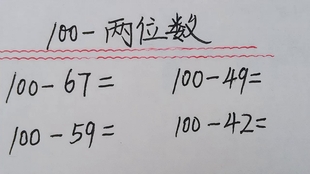 100-两位数
100-67= 100-49=
100-59= 100-42=